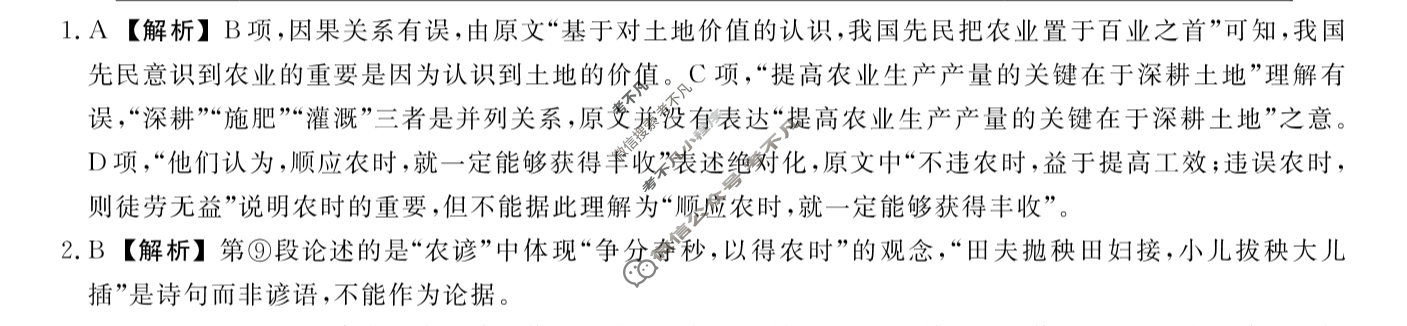 1. A 【解析】B项,因果关系有误,由原文“基于对土地价值的认识,我国先民把农业置于百业之首”可知,我国
先民意识到农业的重要是因为认识到土地的价值。C项,“提高农业生产产量的关键在于深耕土地”理解有
误,“深耕”“施肥”“灌溉”三者是并列关系,原文并没有表达“提高农业生产产量的关键在于深耕土地”之意。
D项,“他们认为,顺应农时,就一定能够获得丰收”表述绝对化,原文中“不违农时,益于提高工效;违误农时,
则徒劳无益”说明农时的重要,但不能据此理解为“顺应农时,就一定能够获得丰收”。
2. B 【解析】第⑨段论述的是“农谚”中体现“争分夺秒,以得农时”的观念,“田夫抛秧田妇接,小儿拔秧大儿
插”是诗句而非谚语,不能作为论据。
考不凡
微信搜索考不凡
考不凡小
微信公众号考不凡